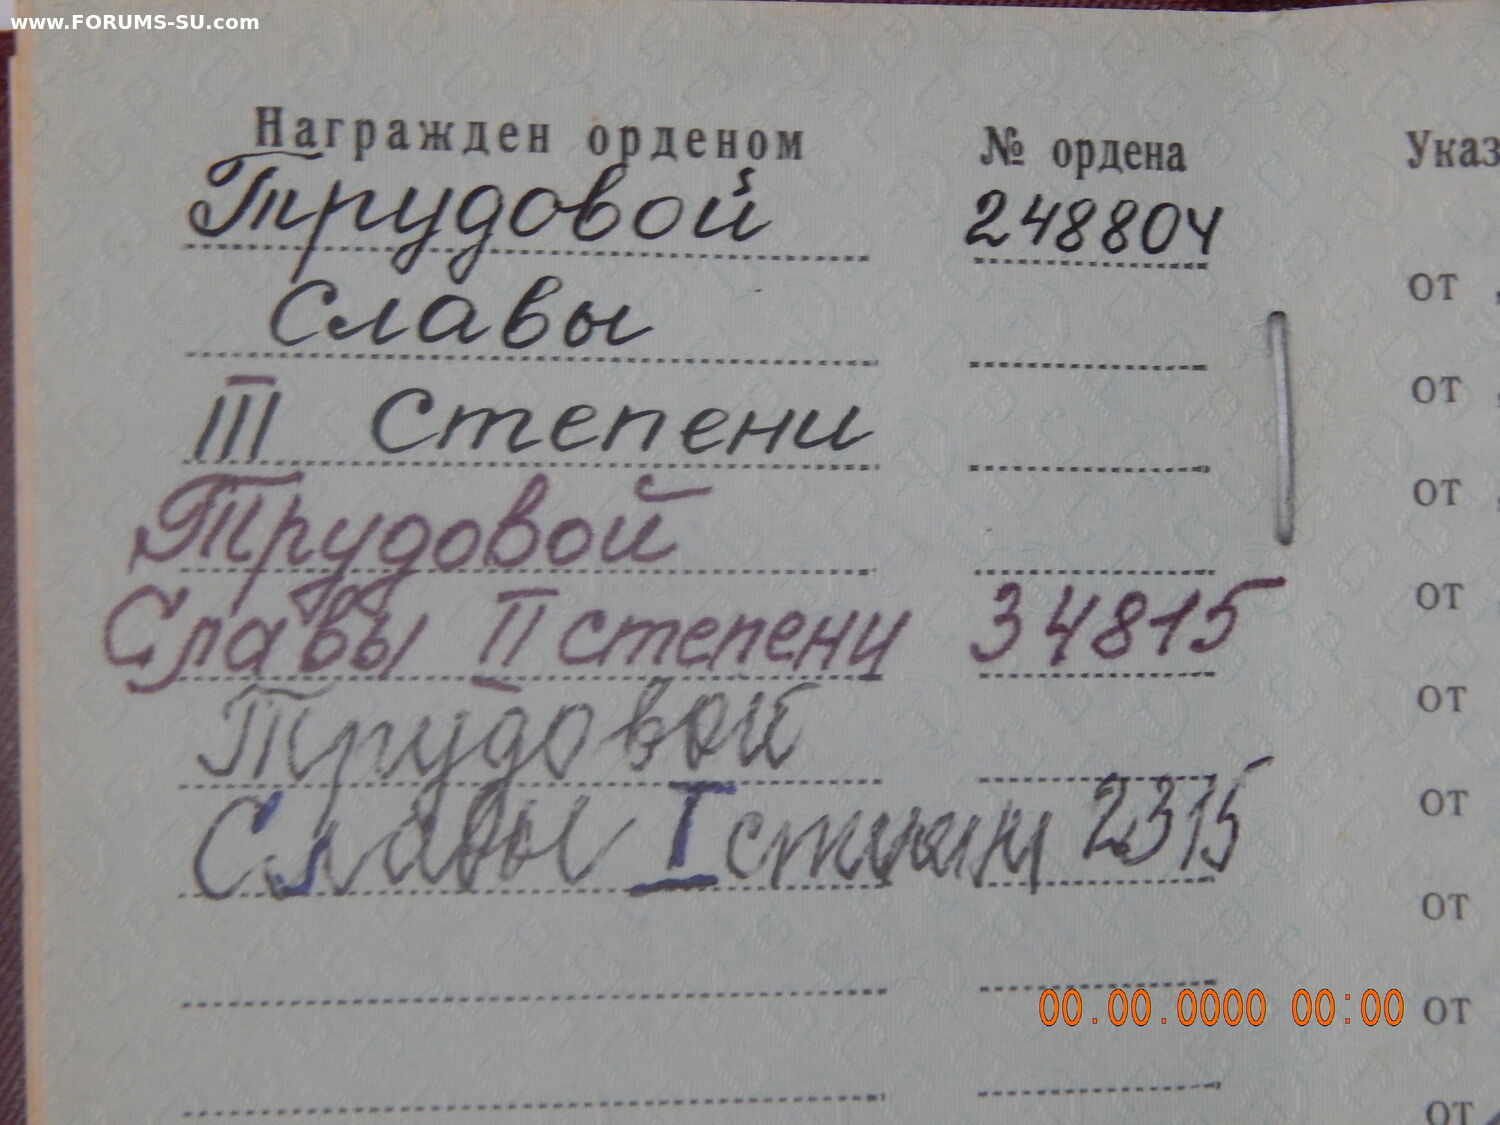 www.FORUMS-SU.com
Награжден орденом № ордена Указ
Трудовой 248804
от
Славы
от
III Степени
от
Трудовой
от
Славы II степени 34815
от
Трудовой
от
Славы I степени 2315
от
00.00.0000 00:00 от
от